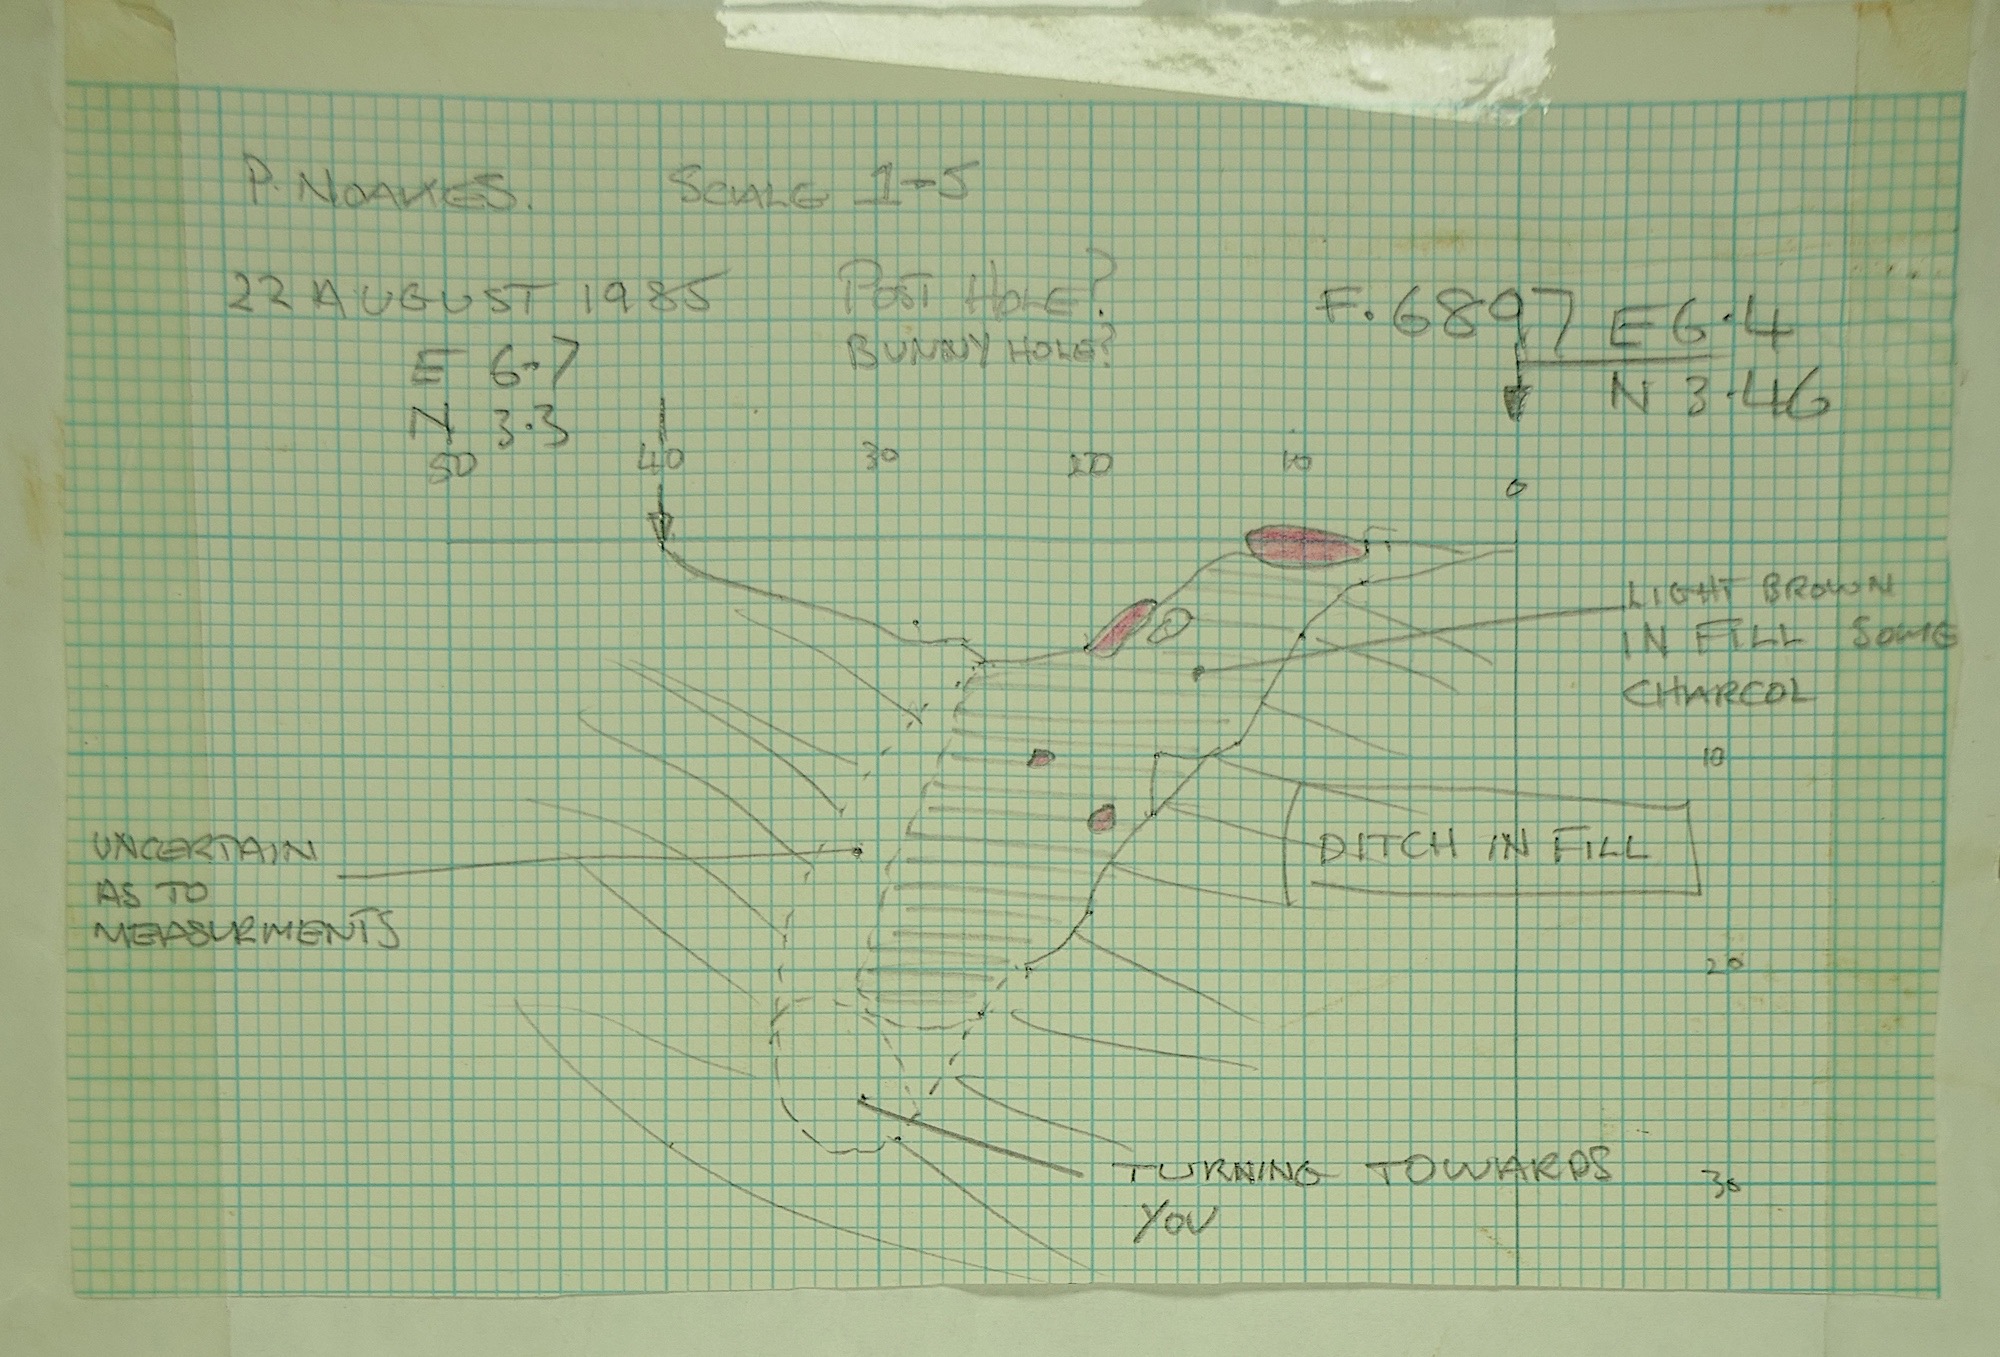 P. NOAKES. SCALE 1-5
22 AUGUST 1985
POST HOLE?
BUNNY HOLE?
F. 6897 E 6.4
N 3.46
E 6.7
N 3.3
50 40 30 20 10 0
LIGHT BROWN
IN FILL SOME
CHARCOL
10
DITCH IN FILL
UNCERTAIN
AS TO
MEASURMENTS
20
TURNING TOWARDS
YOU
30